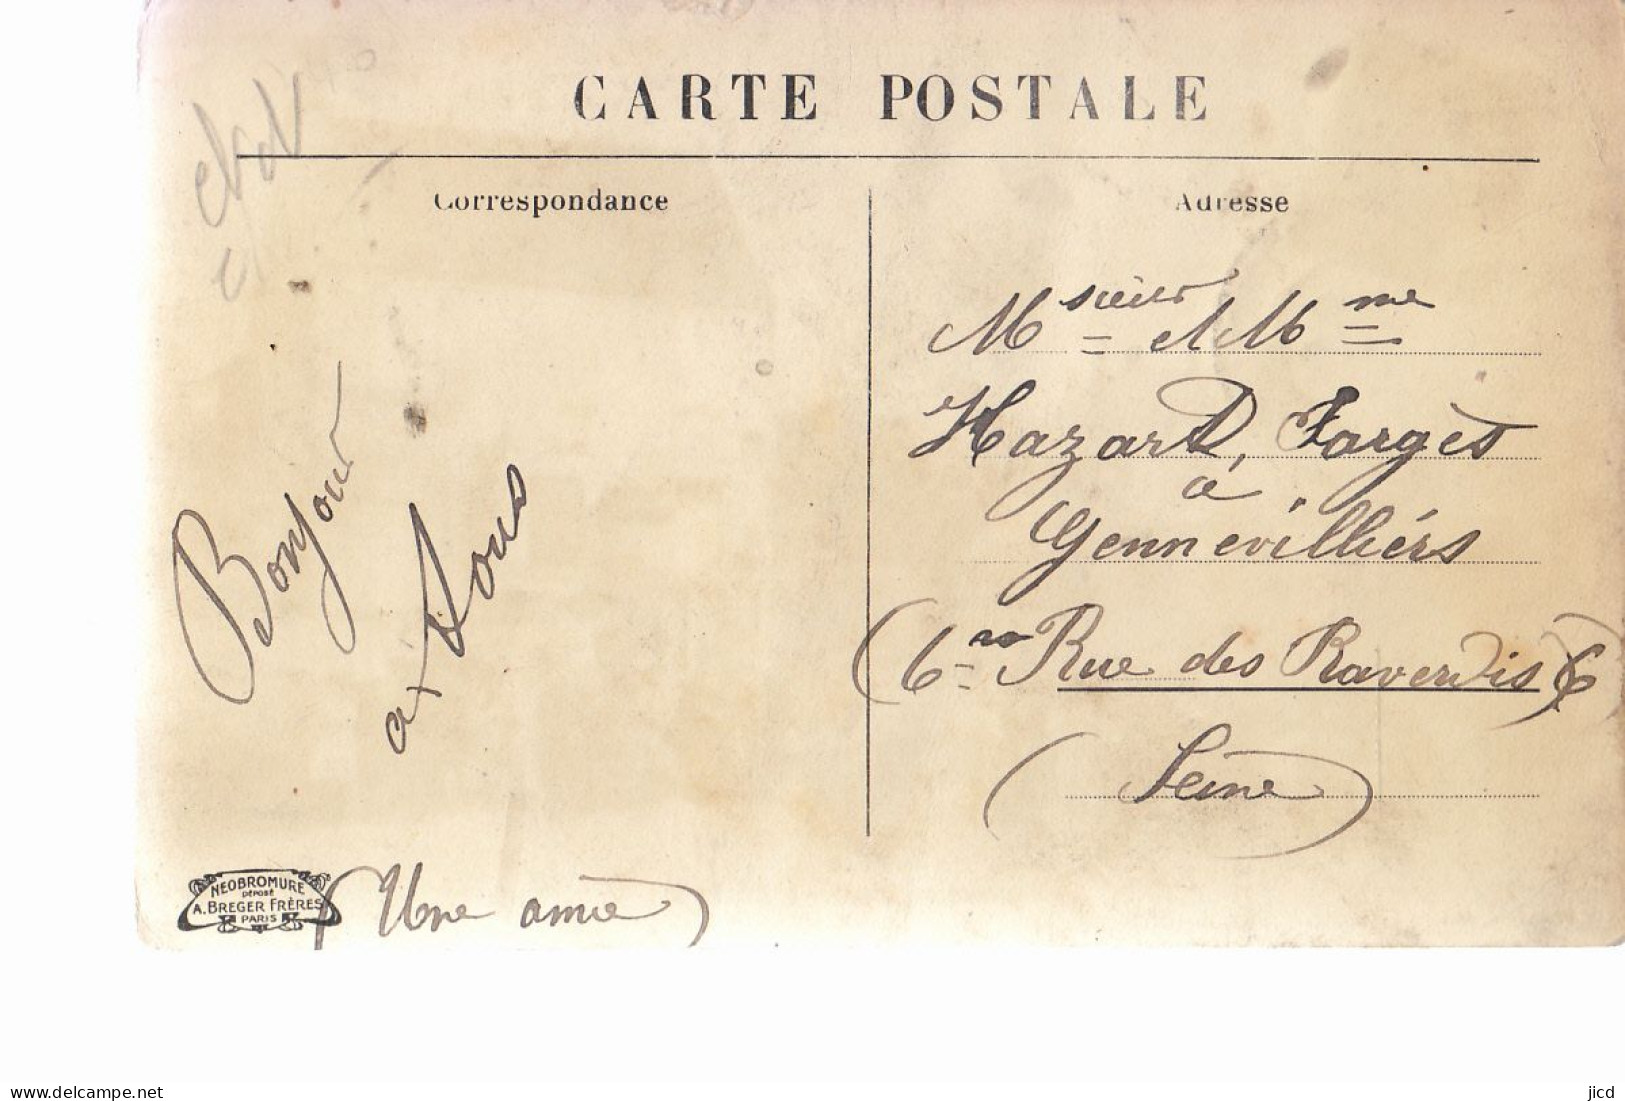 CARTE POSTALE
Correspondance
Adresse
Bonjour
a tous
(Une amie)
NEOBROMURE
DÉPOSÉ
A. BREGER FRÈRES
PARIS
Msieur et Mme
Hazard, Fargès
a
Gennevilliérs
(6 Rue des Raverdis 6)
(Seine)
delcampe.net
jicd